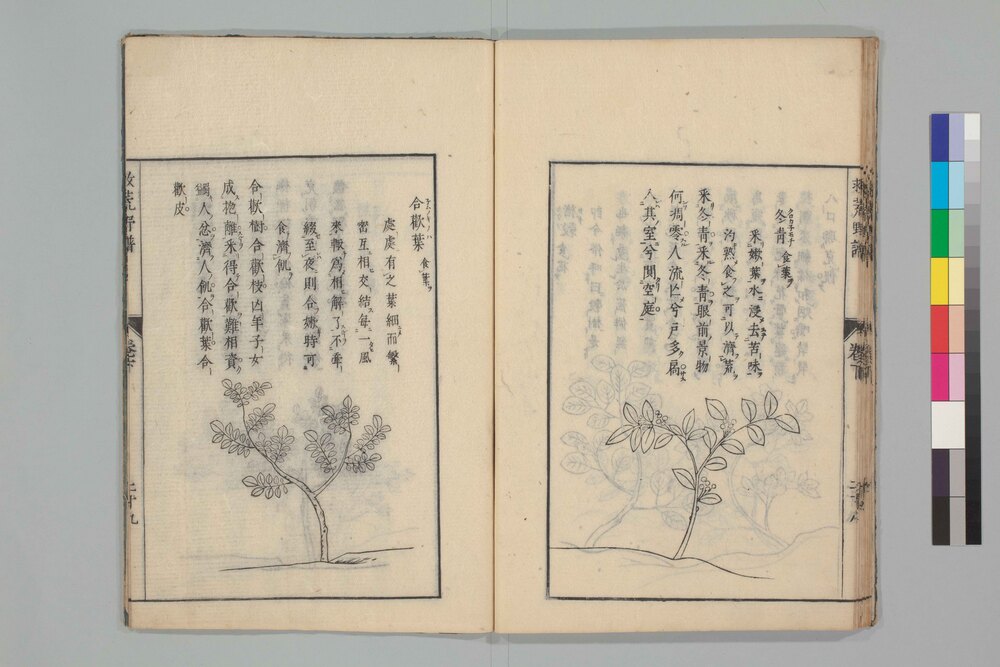 冬青 食葉
采嫩葉水浸去苦味
汋熟食之可以濟荒
采冬青采冬青眼前景物
何凋零人流亡兮戶多扃
人其室兮闃空庭
救荒野譜
卷下
合歡葉 食葉
處處有之葉細而繁
密互相交結每一風
來輙爲相解了不牽
綴至夜則合嫩時可
食濟飢
合歡樹合歡枝凶年子女
成抱離采得合歡難相資
蠲人忿濟人飢合歡葉合
歡皮
救荒野譜
卷下
二十九